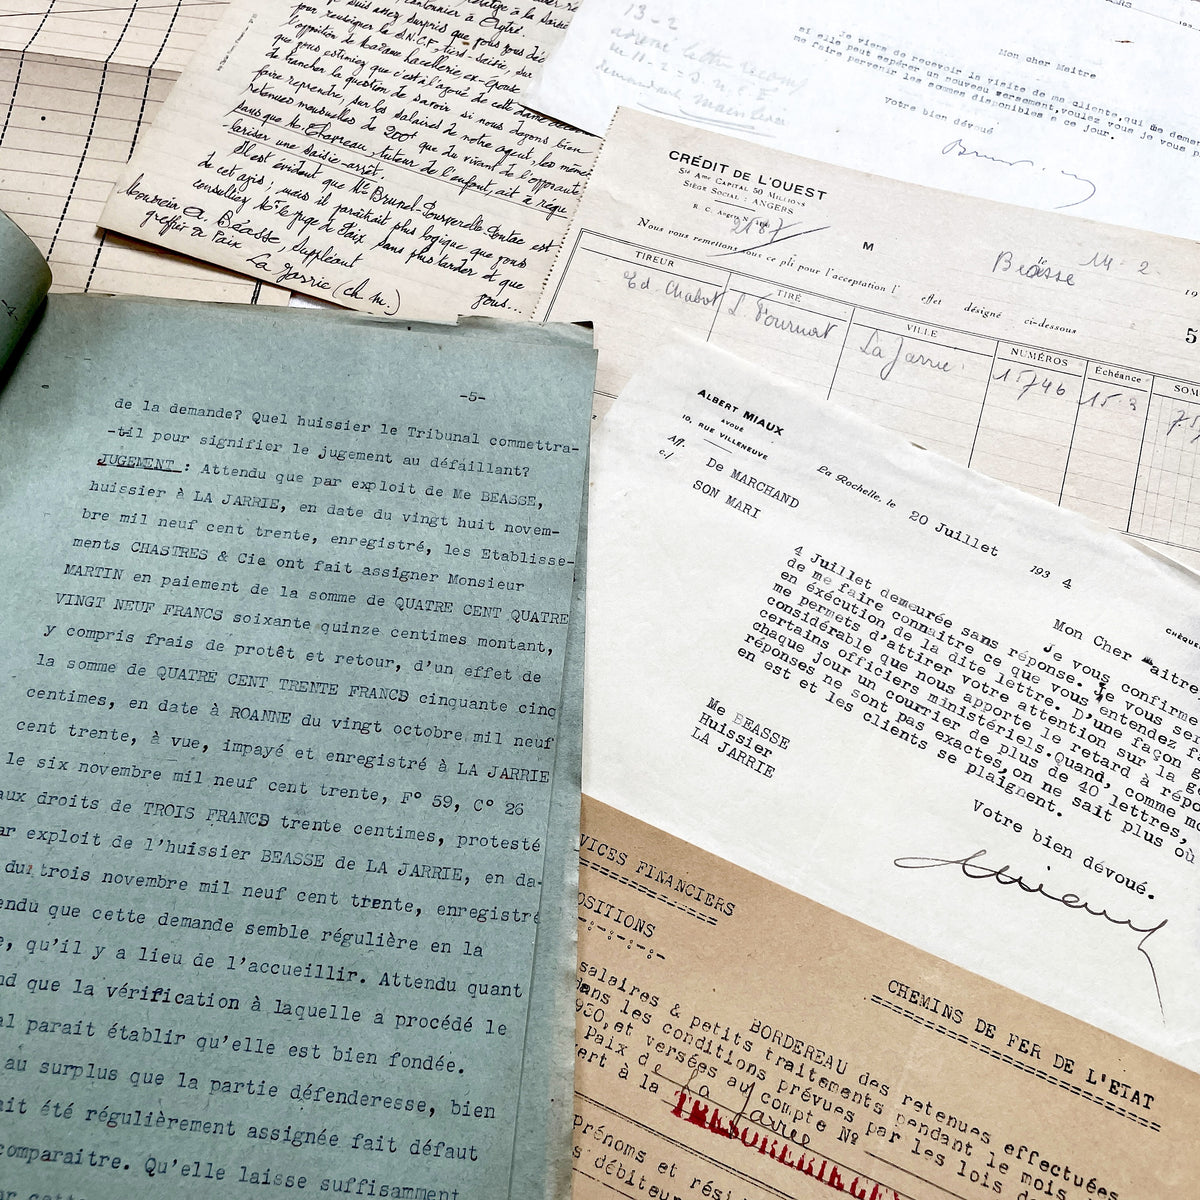 pour renseigner la S.N.C.F., tiers-saisie, sur
l'opposition de Madame
que vous estimiez que c'est à l'avoué de cette dame
de trancher la question de savoir si nous devons bien
faire reprendre, sur les salaires de notre agent, les mêmes
retenues mensuelles de 200f que du vivant de l'opposante
sans que Me tuteur de l'enfant, ait à régu-
lariser une saisie-arrêt.
Il est évident que Me est
de cet avis; mais il paraîtrait plus logique que vous
consultiez M. le Juge de Paix sans plus tarder et que
vous...
Monsieur A. Béasse, suppléant
greffier de Paix
La Jarrie (ch. m.)
13-2
Mon cher Maître
je viens de recevoir la visite de ma cliente, qui me deman
si elle peut espérer un nouveau versement, voulez vous je vous p
me faire parvenir les sommes disponibles à ce jour.
Votre bien dévoué
CRÉDIT DE L'OUEST
Sté Ame CAPITAL 50 MILLIONS
SIÈGE SOCIAL : ANGERS
R. C. Angers
2187
M Béasse
le 14-2- 19
Nous vous remettons sous ce pli pour l'acceptation l' effet désigné ci-dessous
TIREUR TIRÉ VILLE NUMÉROS Échéance SOM
Ed Chabot L. La Jarrie 15746 15.3
5
-5-
de la demande? Quel huissier le Tribunal commettra-
-til pour signifier le jugement au défaillant?
JUGEMENT : Attendu que par exploit de Me BEASSE,
huissier à LA JARRIE, en date du vingt huit novem-
bre mil neuf cent trente, enregistré, les Etablisse-
ments CHASTRES & Cie ont fait assigner Monsieur
MARTIN en paiement de la somme de QUATRE CENT QUATRE
VINGT NEUF FRANCS soixante quinze centimes montant,
y compris frais de protêt et retour, d'un effet de
la somme de QUATRE CENT TRENTE FRANCS cinquante cinq
centimes, en date à ROANNE du vingt octobre mil neuf
cent trente, à vue, impayé et enregistré à LA JARRIE
le six novembre mil neuf cent trente, F° 59, C° 26
aux droits de TROIS FRANCS trente centimes, protesté
ar exploit de l'huissier BEASSE de LA JARRIE, en da-
du trois novembre mil neuf cent trente, enregistré
endu que cette demande semble régulière en la
e, qu'il y a lieu de l'accueillir. Attendu quant
nd que la vérification à laquelle a procédé le
al parait établir qu'elle est bien fondée.
au surplus que la partie défenderesse, bien
ait été régulièrement assignée fait défaut
comparaitre. Qu'elle laisse suffisamment
ALBERT MIAUX
AVOUÉ
10, RUE VILLENEUVE
Aff. De MARCHAND
c/ SON MARI
La Rochelle, le 20 Juillet 193 4
CHÈQUE
Mon Cher Maitre,
Je vous confirme
4 Juillet demeurée sans réponse. Je vous ser
de me faire connaître ce que vous entendez fa
en exécution de la dite lettre. D'une façon g
me permets d'attirer votre attention sur la g
considérable que nous apporte le retard à répo
certains officiers ministériels. Quand, comme mo
chaque jour un courrier de plus de 40 lettres,
réponses ne sont pas exactes, on ne sait plus où
en est et les clients se plaignent.
Votre bien dévoué.
Me BEASSE
Huissier
LA JARRIE
VICES FINANCIERS
OSITIONS
CHEMINS DE FER DE L'ETAT
BORDEREAU des retenues effectuées
salaires & petits traitements pendant le mois
dans les conditions prévues par les lois d
950, et versées au compte N°
Paix de La Jarrie
ert à la TRESORERIE
Prénoms et rési
s débiteur